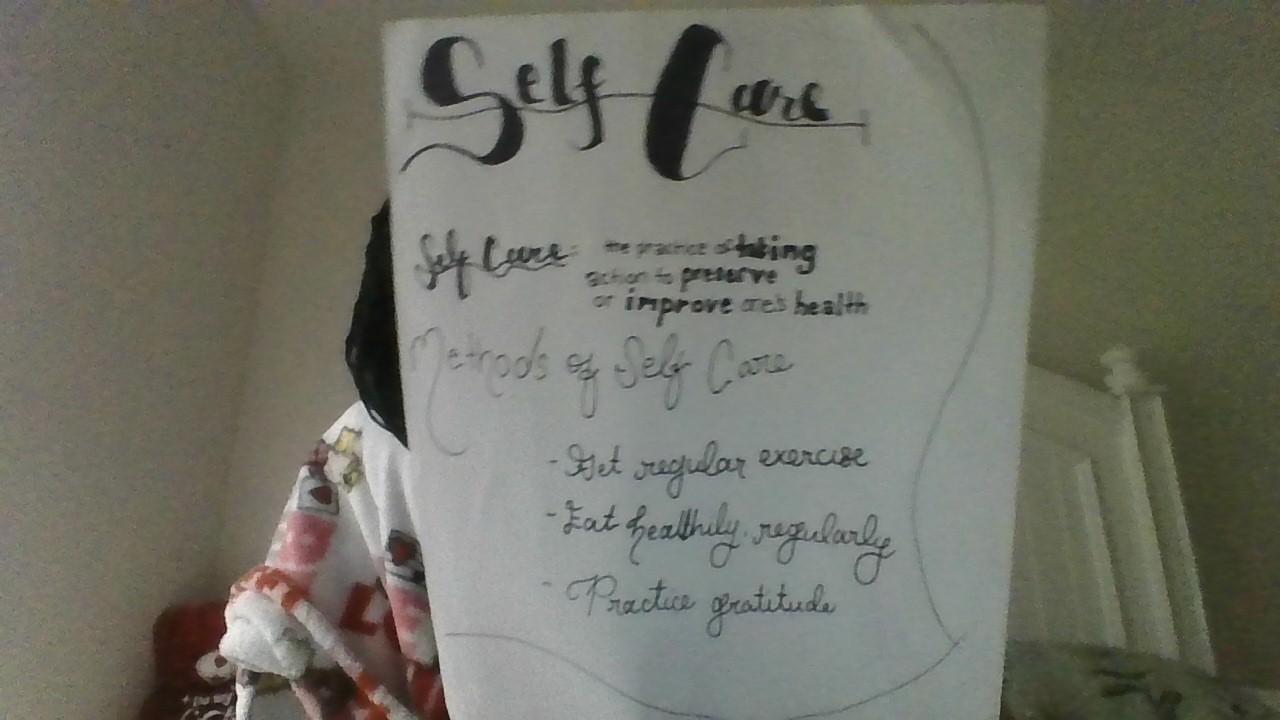 Self Care
Self Care: the practice of taking
action to preserve
or improve one's health
Methods of Self Care
- Get regular exercise
- Eat healthily, regularly
- Practice gratitude